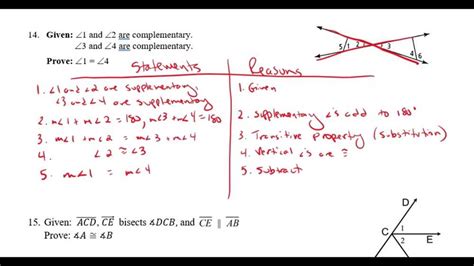 14. Given: ∠1 and ∠2 are complementary.
∠3 and ∠4 are complementary.
Prove: ∠1 = ∠4
5 1 2 3 4 6
Statements Reasons
1. ∠1 and ∠2 are supplementary 1. Given
∠3 and ∠4 are supplementary
2. m∠1 + m∠2 = 180, m∠3 + m∠4 = 180 2. Supplementary ∠s add to 180°
3. m∠1 + m∠2 = m∠3 + m∠4 3. Transitive property (substitution)
4. ∠2 ≅ ∠3 4. Vertical ∠s are ≅
5. m∠1 = m∠4 5. Subtract
15. Given: ACD, CE bisects ∡DCB, and CE ∥ AB
Prove: ∡A ≅ ∡B
D
C 1 E
2